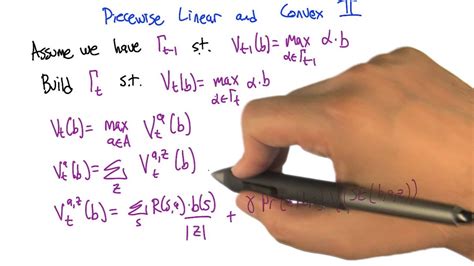 Piecewise Linear and Convex II
Assume we have Γt-1 s.t. Vt-1(b) = max α∈Γt-1 α·b
Build Γt s.t. Vt(b) = max α∈Γt α·b
Vt(b) = max a∈A Vt^a(b)
Vt^a(b) = Σz Vt^a,z(b)
Vt^a,z(b) = Σs R(s,a)·b(s) / |z| + γ Pr(